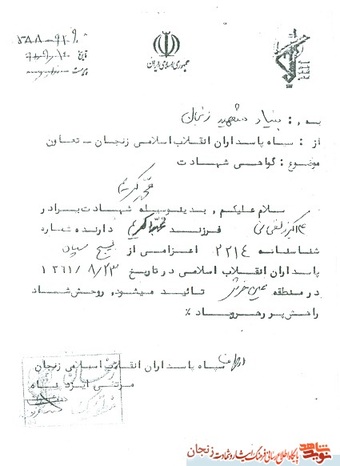 جمهوری اسلامی ایران
تاریخ
به : بنیاد شهید زنجان
از : سپاه پاسداران انقلاب اسلامی زنجان - تعاون
موضوع : گواهی شهادت
سلام علیکم ، بدینوسیله شهادت برادر
فرزند دارنده شماره
شناسنامه ۲۲۱۴ اعزامی از بسیج سپاه
پاسداران انقلاب اسلامی در تاریخ ۱۳۶۱/۸/۲۳
در منطقه تائید میشود. روحش شاد
راهش پر رهرو باد ٪
سپاه پاسداران انقلاب اسلامی زنجان
مرتضی ایزد پناه
نوید شاهد
پایگاه اطلاع رسانی فرهنگ ایثار و شهادت زنجان